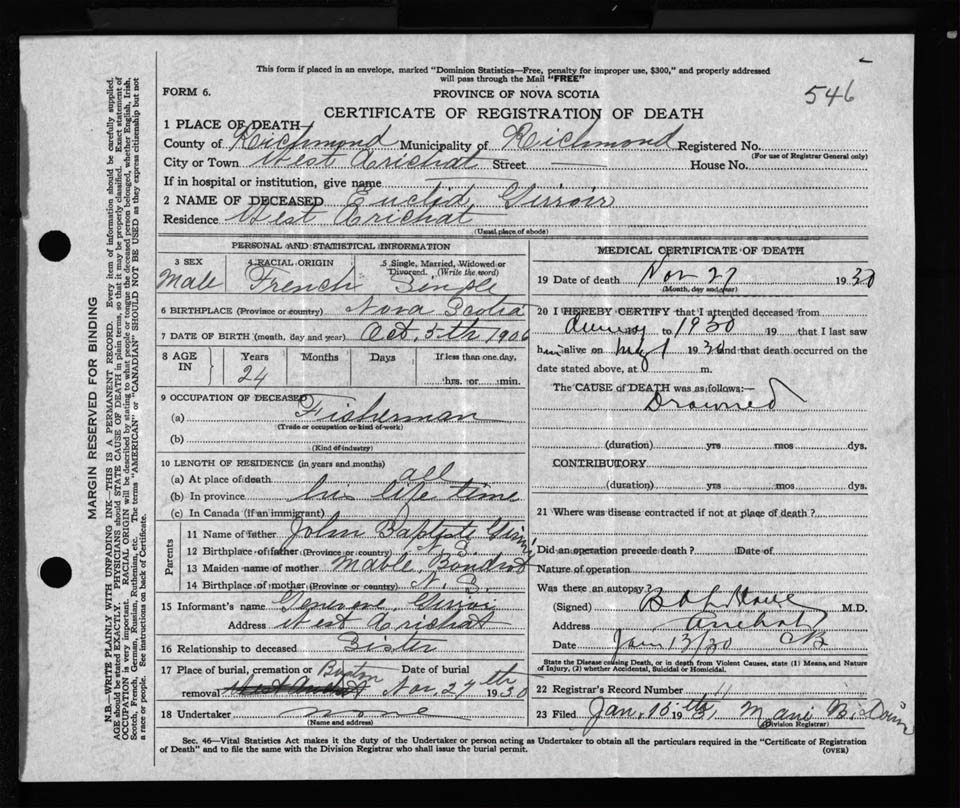 This form if placed in an envelope, marked "Dominion Statistics—Free, penalty for improper use, $300," and properly addressed
will pass through the Mail "FREE"
FORM 6.
PROVINCE OF NOVA SCOTIA
546
CERTIFICATE OF REGISTRATION OF DEATH
1 PLACE OF DEATH—
County of Richmond Municipality of Richmond Registered No.
(For use of Registrar General only)
City or Town West Arichat Street — House No.
If in hospital or institution, give name —
2 NAME OF DECEASED Euclid Girroir
Residence West Arichat
(Usual place of abode)
PERSONAL AND STATISTICAL INFORMATION
3 SEX
Male
4 RACIAL ORIGIN
French
5 Single, Married, Widowed or
Divorced. (Write the word)
Single
6 BIRTHPLACE (Province or country) Nova Scotia
7 DATE OF BIRTH (month, day and year) Oct. 5th 1906
8 AGE
IN
Years
24
Months
Days
If less than one day,
hrs. or min.
9 OCCUPATION OF DECEASED
(a) Fisherman
(Trade or occupation or kind of work)
(b)
(Kind of industry)
10 LENGTH OF RESIDENCE (in years and months)
(a) At place of death all
(b) In province his life time
(c) In Canada (if an immigrant)
Parents
11 Name of father John Baptiste
12 Birthplace of father (Province or country) N. S.
13 Maiden name of mother Mable Boudrot
14 Birthplace of mother (Province or country) N. S.
15 Informant's name
Address West Arichat
16 Relationship to deceased Sister
17 Place of burial, cremation or
removal West Arichat
Date of burial
Nov. 27th 1930
18 Undertaker none
(Name and address)
MEDICAL CERTIFICATE OF DEATH
19 Date of death Nov 27 1930
(Month, day and year)
20 I HEREBY CERTIFY that I attended deceased from
to 1930 19 that I last saw
him alive on 1930 and that death occurred on the
date stated above, at m.
The CAUSE of DEATH was as follows:—
Drowned
(duration) yrs mos dys.
CONTRIBUTORY
(duration) yrs mos dys.
21 Where was disease contracted if not at place of death?
Did an operation precede death? Date of
Nature of operation
Was there an autopsy?
(Signed) M.D.
Address Arichat
Date Jan 13/30 CB
State the Disease causing Death, or in death from Violent Causes, state (1) Means, and Nature
of Injury, (2) whether Accidental, Suicidal or Homicidal.
22 Registrar's Record Number 11
23 Filed Jan. 15th 1931
(Division Registrar)
Sec. 46—Vital Statistics Act makes it the duty of the Undertaker or person acting as Undertaker to obtain all the particulars required in the "Certificate of Registration
of Death" and to file the same with the Division Registrar who shall issue the burial permit.
(OVER)
MARGIN RESERVED FOR BINDING
N.B.—WRITE PLAINLY WITH UNFADING INK—THIS IS A PERMANENT RECORD. Every item of information should be carefully supplied.
AGE should be stated EXACTLY. PHYSICIANS should STATE CAUSE OF DEATH in plain terms, so that it may be properly classified. Exact statement of
OCCUPATION is very important. RACIAL ORIGIN will be described by stating to what people or tongue the deceased person belonged, whether English, Irish,
Scotch, French, German, Russian, Ruthenian, etc. The terms "AMERICAN" or "CANADIAN" SHOULD NOT BE USED as they express citizenship but not
a race or people. See instructions on back of Certificate.